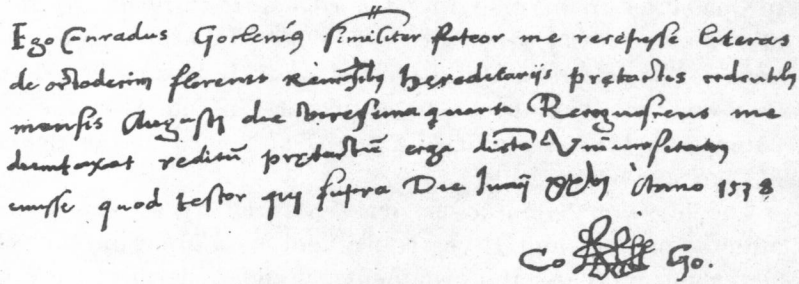 Ego Conradus Goclenius similiter fateor me recepisse literas
de octodecim florenis Renensibus heredetarijs prętactis cedentibus
mensis Augusti die vicesima quarta Recognoscens me
dumtaxat reditum prętactum erga dictam Universitatem
emisse quod testor qui supra Die Junij Anno 153
Co Go.